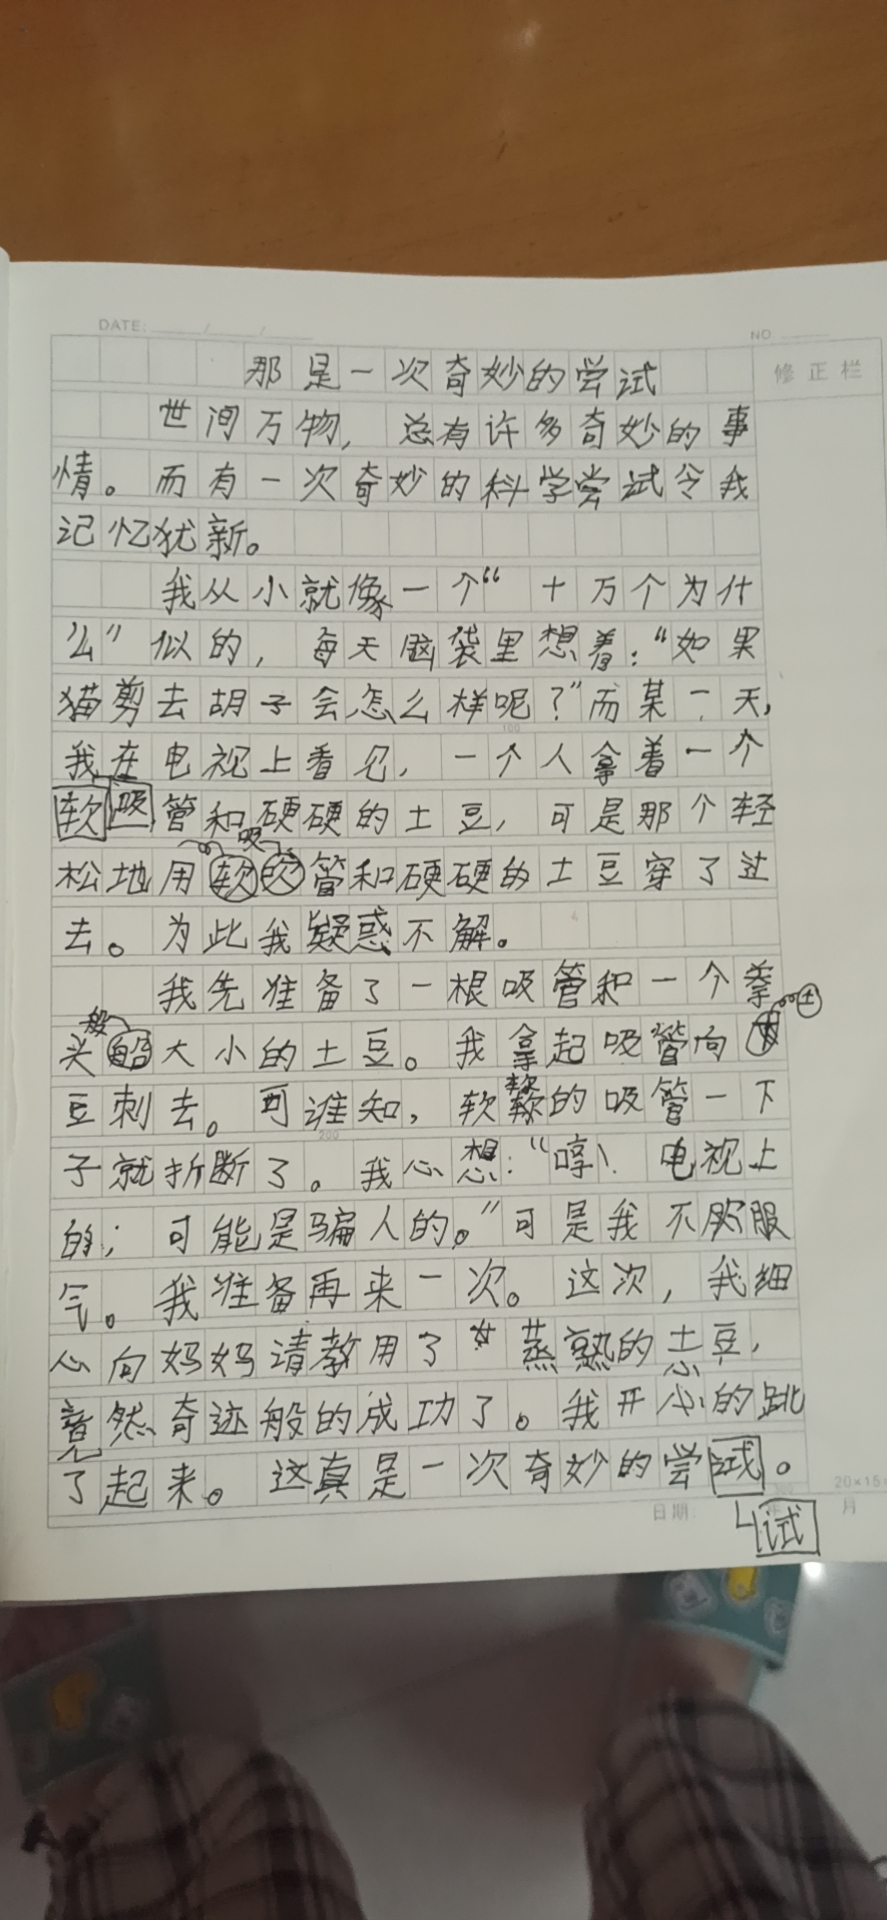 DATE: / /
NO
修正栏
那是一次奇妙的尝试
世间万物，总有许多奇妙的事
情。而有一次奇妙的科学尝试令我
记忆犹新。
我从小就像一个“十万个为什
么”似的，每天脑袋里想着：“如果
猫剪去胡子会怎么样呢？”而某一天，
我在电视上看见，一个人拿着一个
软吸管和硬硬的土豆，可是那个轻
吸
松地用软管和硬硬的土豆穿了过
去。为此我疑惑不解。
我先准备了一根吸管和一个拳
般
土
头大小的土豆。我拿起吸管向
豆刺去。可谁知，软软的吸管一下
子就折断了。我心想：“哼！电视上
的；可能是骗人的。”可是我不服
气。我准备再来一次。这次，我细
心向妈妈请教用了蒸熟的土豆，
竟然奇迹般的成功了。我开心的跳
了起来。这真是一次奇妙的尝试。
试
20×15
日期：
月
100
200